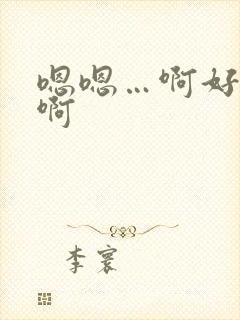 嗯嗯…啊好
啊
李寰